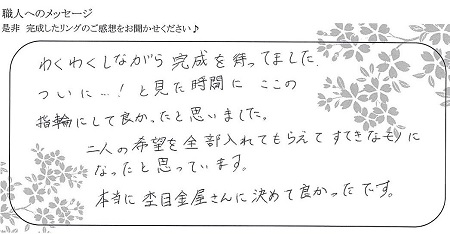 職人へのメッセージ
是非 完成したリングのご感想をお聞かせください♪
わくわくしながら 完成を待ってました。
ついに…! と見た時間に ここの
指輪にして良かったと思いました。
二人の希望を全部入れてもらえて すてきなモノに
なったと思っています。
本当に 杢目金屋さんに決めて良かったです。